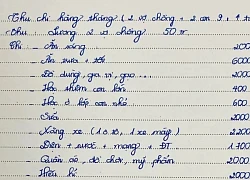 Thu chi hàng tháng ( 2 vợ chồng + 2 con 9 + 4
Thu : Lương 2 vợ chồng 50 tr
Chi : - Ăn sáng 2000
- Ăn trưa + tối 6000
- Đồ dùng, gia vị, gạo... 2000
- Học thêm con lớn 400
- Học ở lớp con nhỏ 600
- Sữa 2000
- Xăng xe ( 1 ô tô, 1 xe máy) 2200
- Điện + nước + mạng + ĐT 1.700
- Quần áo, đồ chơi, mỹ phẩm 2000
- Hiếu hỉ 2000